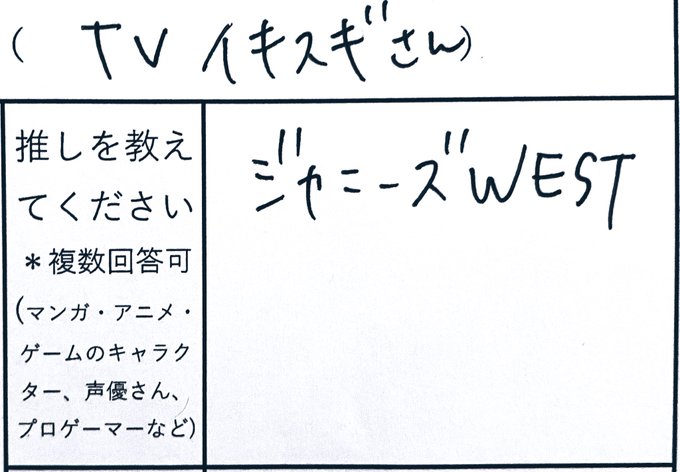 ( TV イキスギさん)
推しを教え
てください
＊複数回答可
(マンガ・アニメ・
ゲームのキャラク
ター、声優さん、
プロゲーマーなど)
ジャニーズWEST